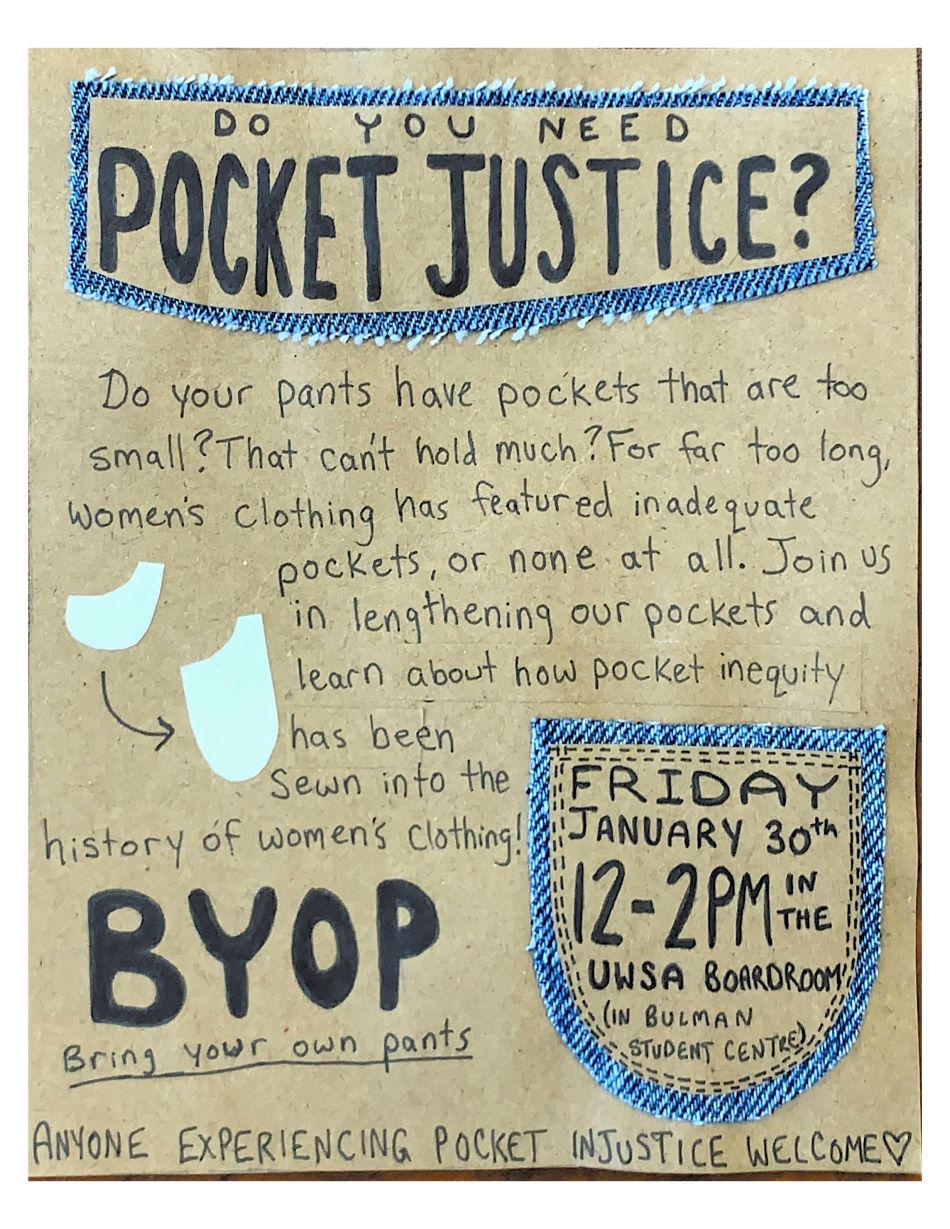 DO YOU NEED
POCKET JUSTICE?
Do your pants have pockets that are too
small? That can't hold much? For far too long,
women's clothing has featured inadequate
pockets, or none at all. Join us
in lengthening our pockets and
learn about how pocket inequity
has been
sewn into the
history of women's clothing!
FRIDAY
JANUARY 30th
12-2PM IN THE
UWSA BOARDROOM
(IN BULMAN
STUDENT CENTRE)
BYOP
Bring your own pants
ANYONE EXPERIENCING POCKET INJUSTICE WELCOME♡